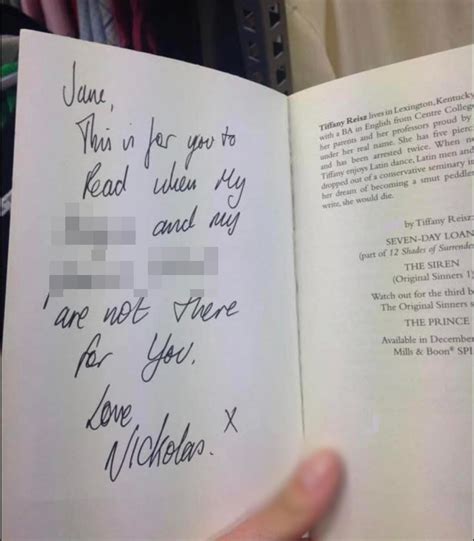 Jane,
This is for you to
Read when My
and my
are not there
for You.
Love
Nickolas. X
Tiffany Reisz lives in Lexington, Kentucky
with a BA in English from Centre College
her parents and her professors proud by
under her real name. She has five pier
and has been arrested twice. When no
Tiffany enjoys Latin dance, Latin men and
dropped out of a conservative seminary
her dream of becoming a smut peddler
write, she would die.
by Tiffany Reisz:
SEVEN-DAY LOAN
(part of 12 Shades of Surrender
THE SIREN
(Original Sinners 1)
Watch out for the third b
The Original Sinners s
THE PRINCE
Available in December
Mills & Boon® SPI